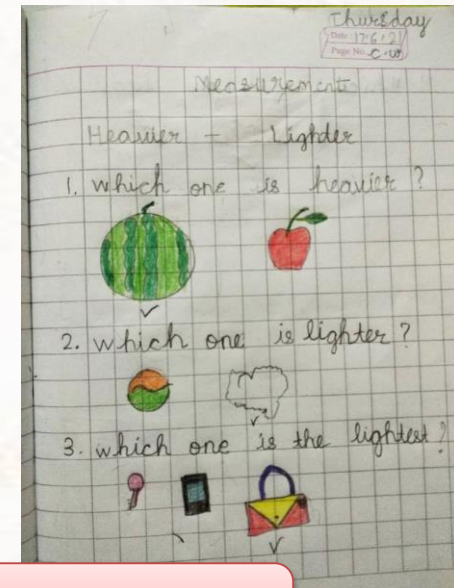 Thursday
Date 17.6.21
Page No. C.W
Measurement
Heavier - Lighder
1. which one is heavier ?
2. which one is lighter ?
3. which one is the lightest ?